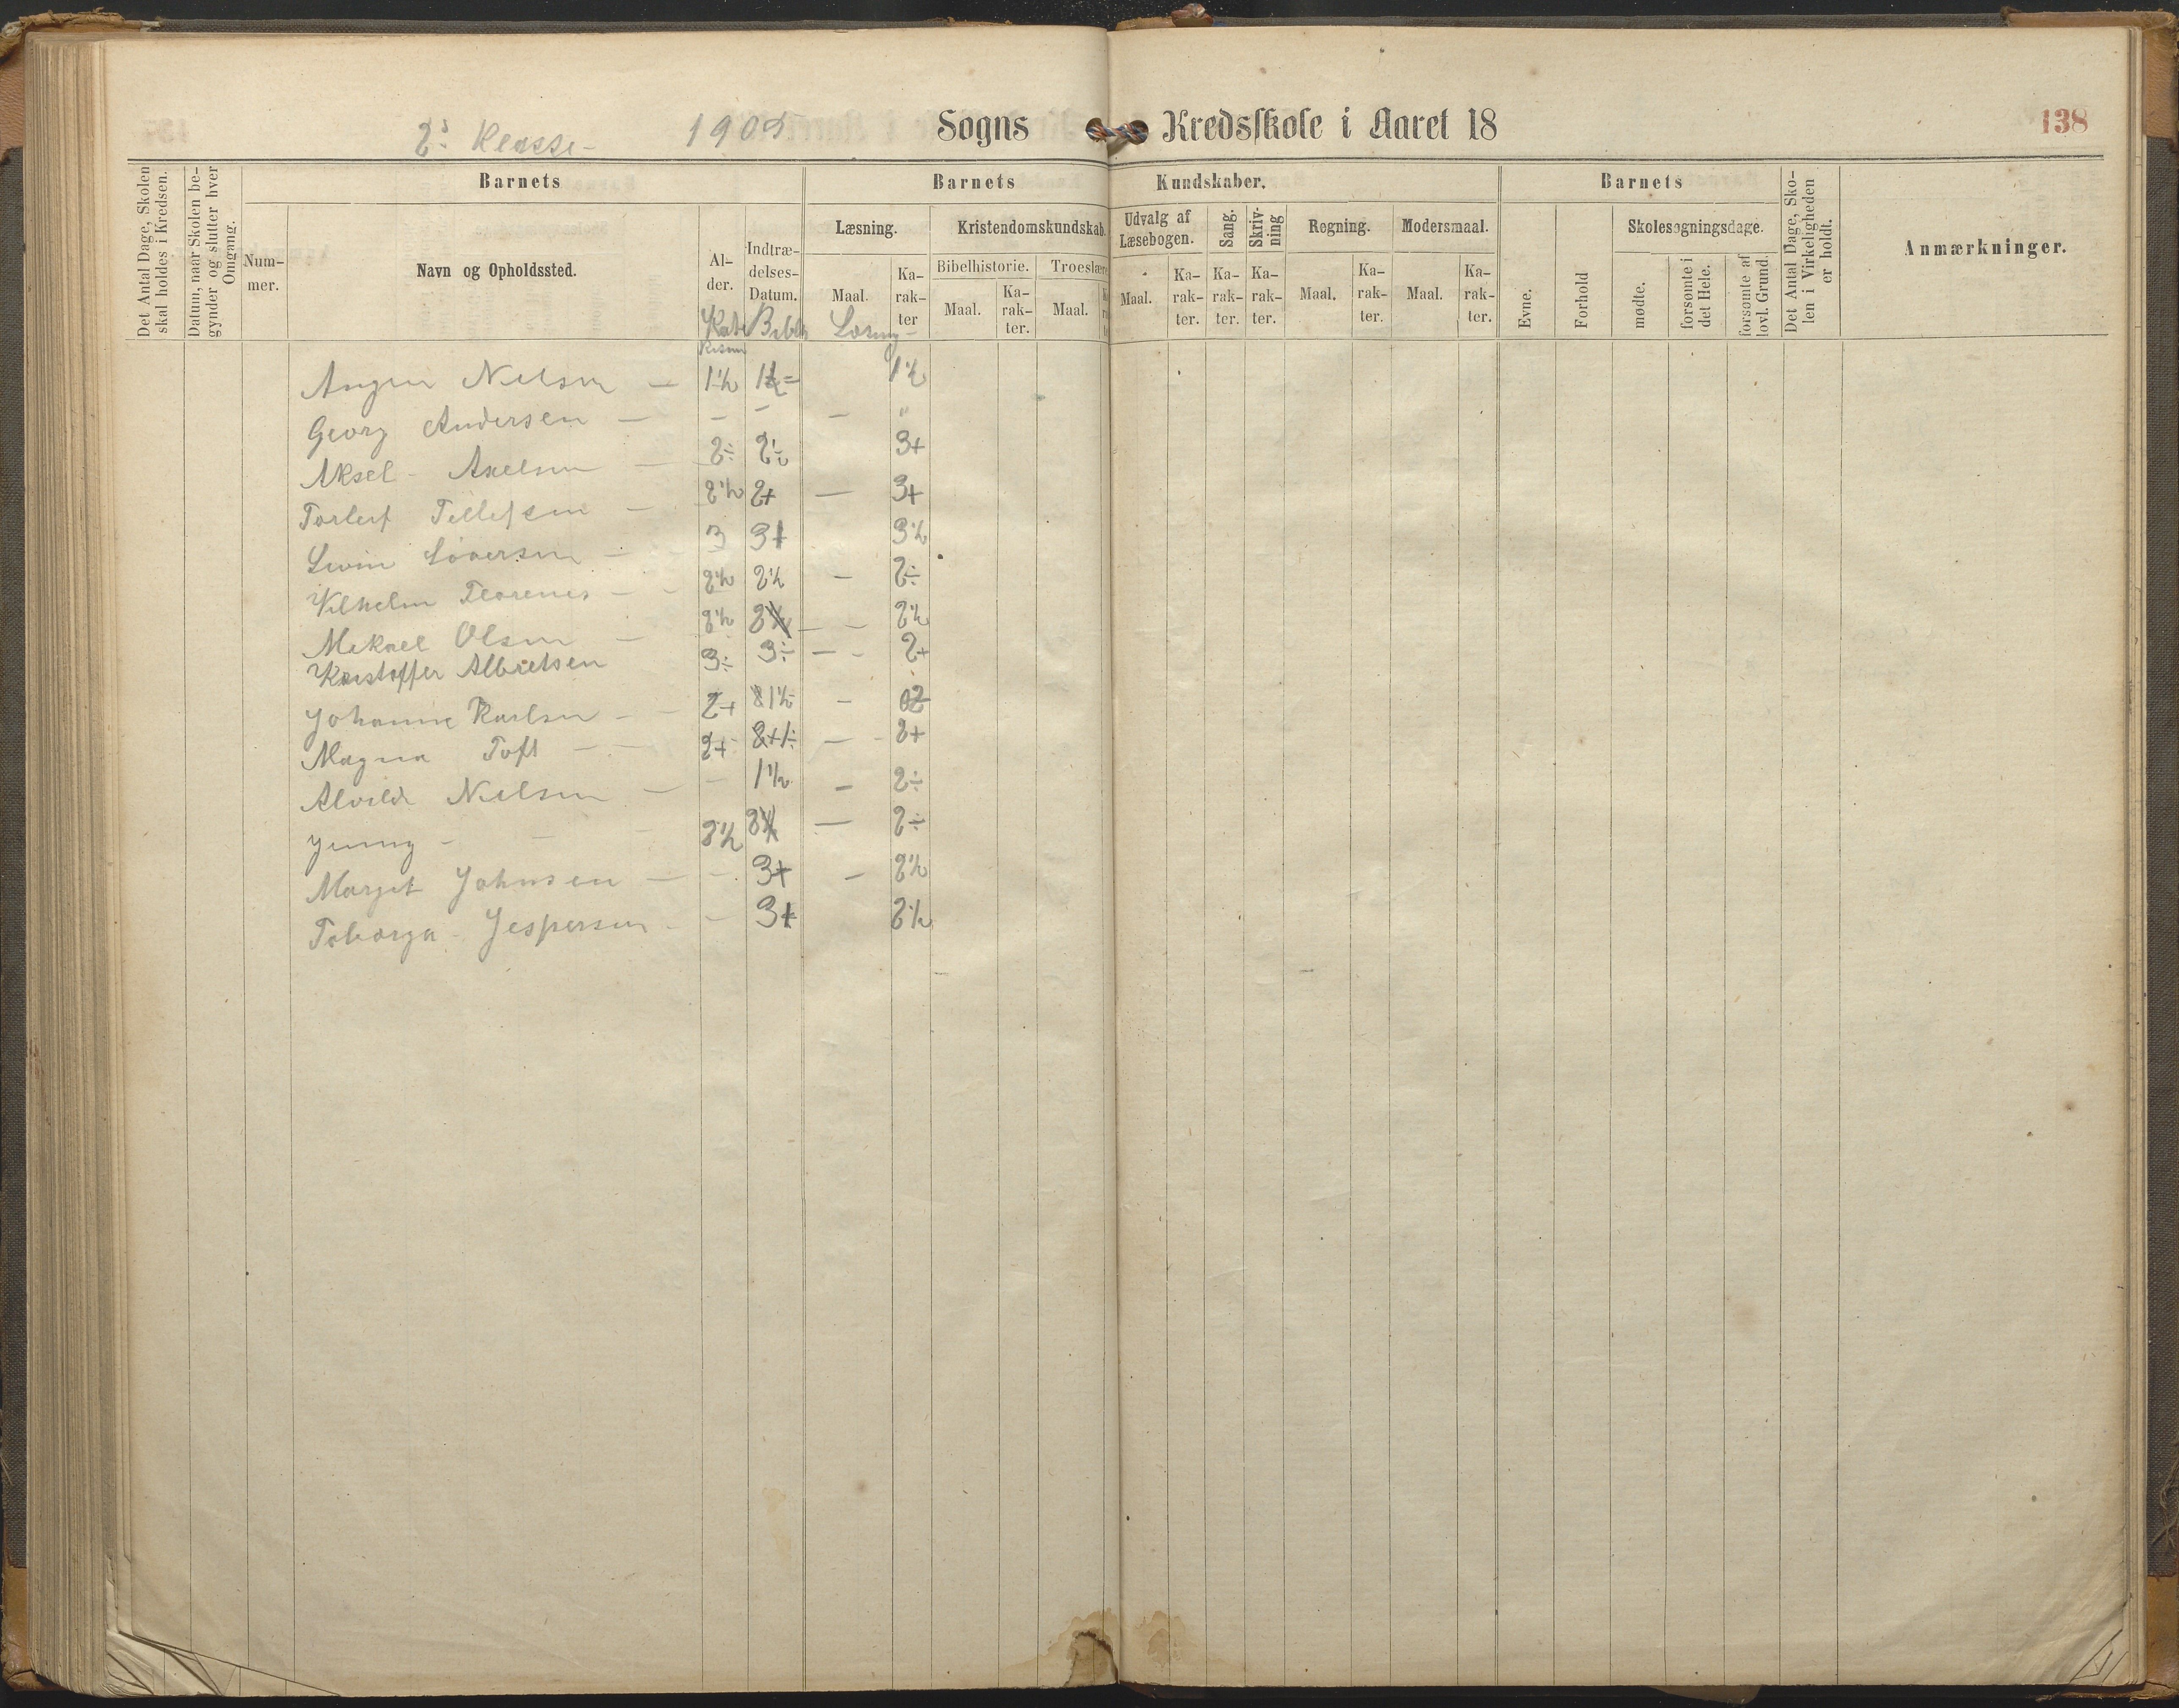 2den Klasse - 1905 Sogns Kredsskole i Aaret 18 138
Det Antal Dage, Skolen skal holdes i Kredsen.
Datum, naar Skolen begynder og slutter hver Omgang.
Barnets
Nummer.
Navn og Opholdssted.
Alder.
Indtrædelses-Datum.
Barnets Kundskaber.
Læsning.
Maal.
Karakter
Kristendomskundskab.
Bibelhistorie.
Maal.
Karakter.
Troeslære
Maal.
Udvalg af Læsebogen.
Maal.
Karakter.
Sang.
Karakter.
Skrivning
Karakter.
Regning.
Maal.
Karakter.
Modersmaal.
Maal.
Karakter.
Barnets
Evne.
Forhold
Skolesøgningsdage.
mødte.
forsømte i det Hele.
forsømte af lovl. Grund.
Det Antal Dage, Skolen i Virkeligheden er holdt.
Anmærkninger.
Kate Bibelh Læsning -
kisme
Nilsen — 1½ 1½ 1½
Georg Andersen — - - — "
Aksel - Axelsen — 2÷ 2÷ 3+
Torleif Tellefsen — 2½ 2+ — 3+
3 3+ 3½
Vilhelm Terenes - 2½ 2½ - 2÷
Mikael Olsen — 2½ 2 - 2½
Kristoffer Albretsen 3÷ 3÷ — - 2+
Johanne Karlsen - 2+ 1½ - 2
Magna Toft - - 2+ 2+ — - 2+
Alvilde Nilsen — - 1½ — 2÷
Jenny - - - 2½ 2 — 2÷
Margit Johnsen — - 3+ — 2½
Toborga - Jespersen - - 3+ 2½